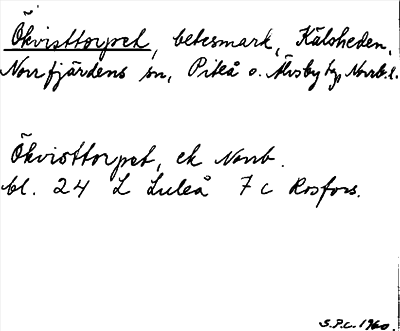 Ökvisttorpet, betesmark, Kälsheden,
Norrfjärdens sn, Piteå o. Älvsby tg, Norrb. l.
Ökvisttorpet, ek Norrb.
bl. 24 L Luleå 7 c Rosfors.
S.P.C. 1960.